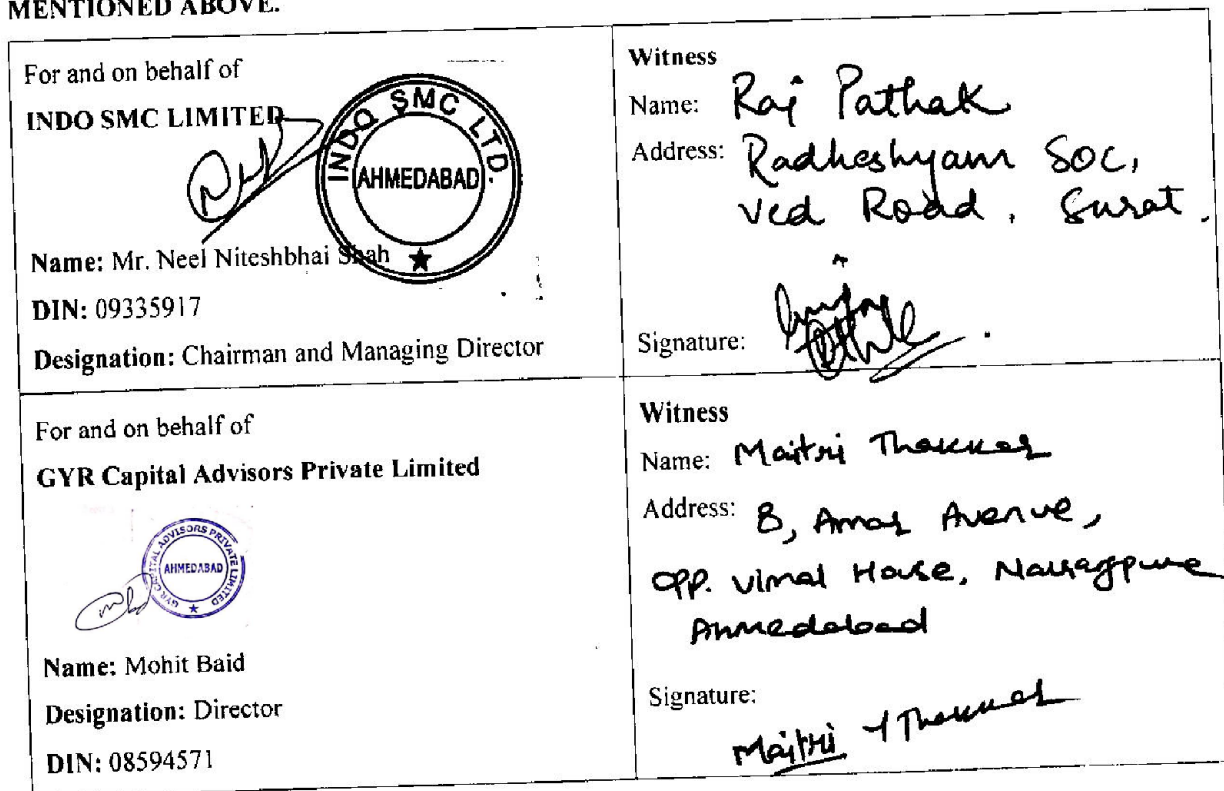 MENTIONED ABOVE.
For and on behalf of
INDO SMC LIMITED
INDO SMC LTD.
AHMEDABAD
Name: Mr. Neel Niteshbhai Shah
DIN: 09335917
Designation: Chairman and Managing Director
Witness
Name: Raj Pathak
Address: Radheshyam Soc,
Ved Road, Surat.
Signature:
For and on behalf of
GYR Capital Advisors Private Limited
GYR CAPITAL ADVISORS PRIVATE LIMITED
AHMEDABAD
Name: Mohit Baid
Designation: Director
DIN: 08594571
Witness
Name: Maitri Thakkar
Address: 8, Amar Avenue,
OPP. Vimal House,
Ahmedabad
Signature:
Maitri Y Thakkar